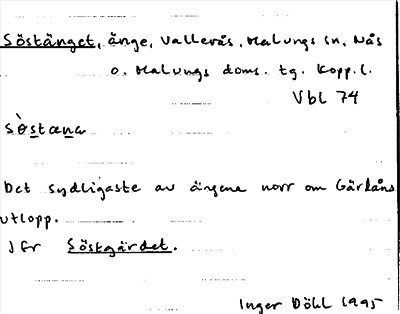 Söstänget, änge, Vallerås, Malungs sn, Nås
o. Malungs doms. tg. Kopp. l.
Vbl 74
sò̱stæna
Det sydligaste av ängena norr om Gärdåns
utlopp.
Jfr Söstgärdet.
Inger Döhl 1995